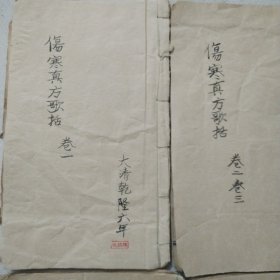 傷寒真方歌括
卷一
大清乾隆六年
傷寒真方歌括
卷二卷三